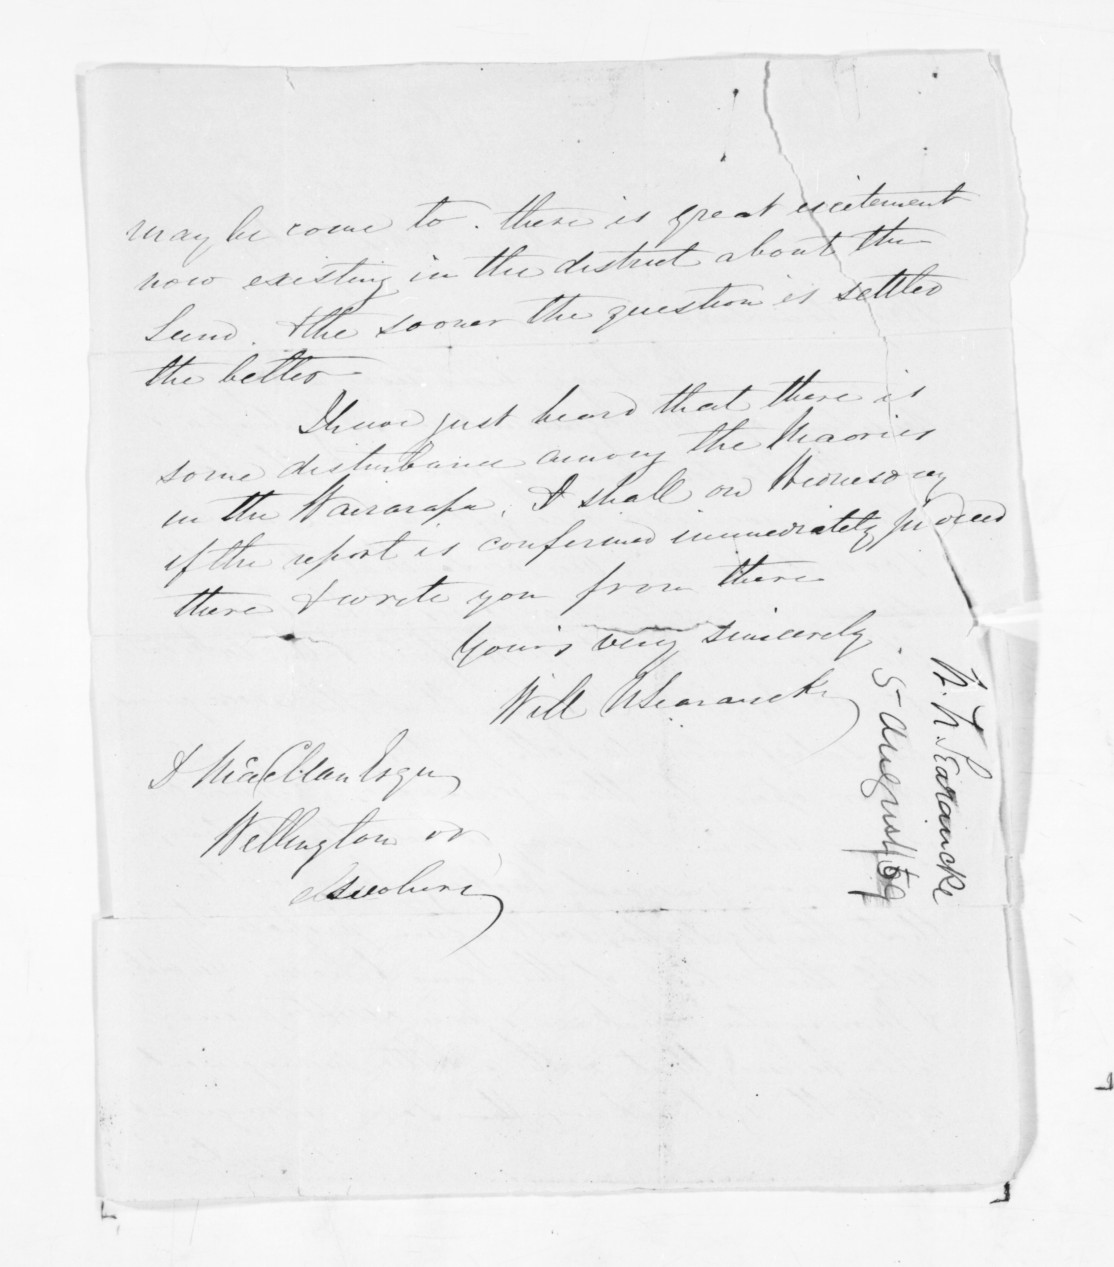 may be come to. there is great excitement
now existing in the district about the
Land. & the sooner the question is settled
the better
I have just heard that there is
some disturbance among the Maories
in the Wairarapa. I shall on Wednesday
if the report is confirmed immediately proceed
there & write you from there
Yours very sincerely
Will N Searancke
D McClean Esqre
Wellington or
elsewhere
W. N. Searancke
5 August/59